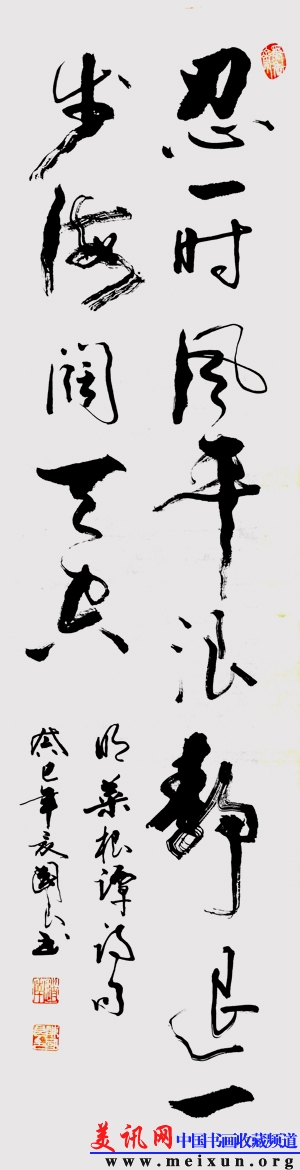 忍一时风平浪静退一
步海阔天空
明菜根谭诗句
癸巳年夏国山书
美讯网 中国书画收藏频道
www.meixun.org